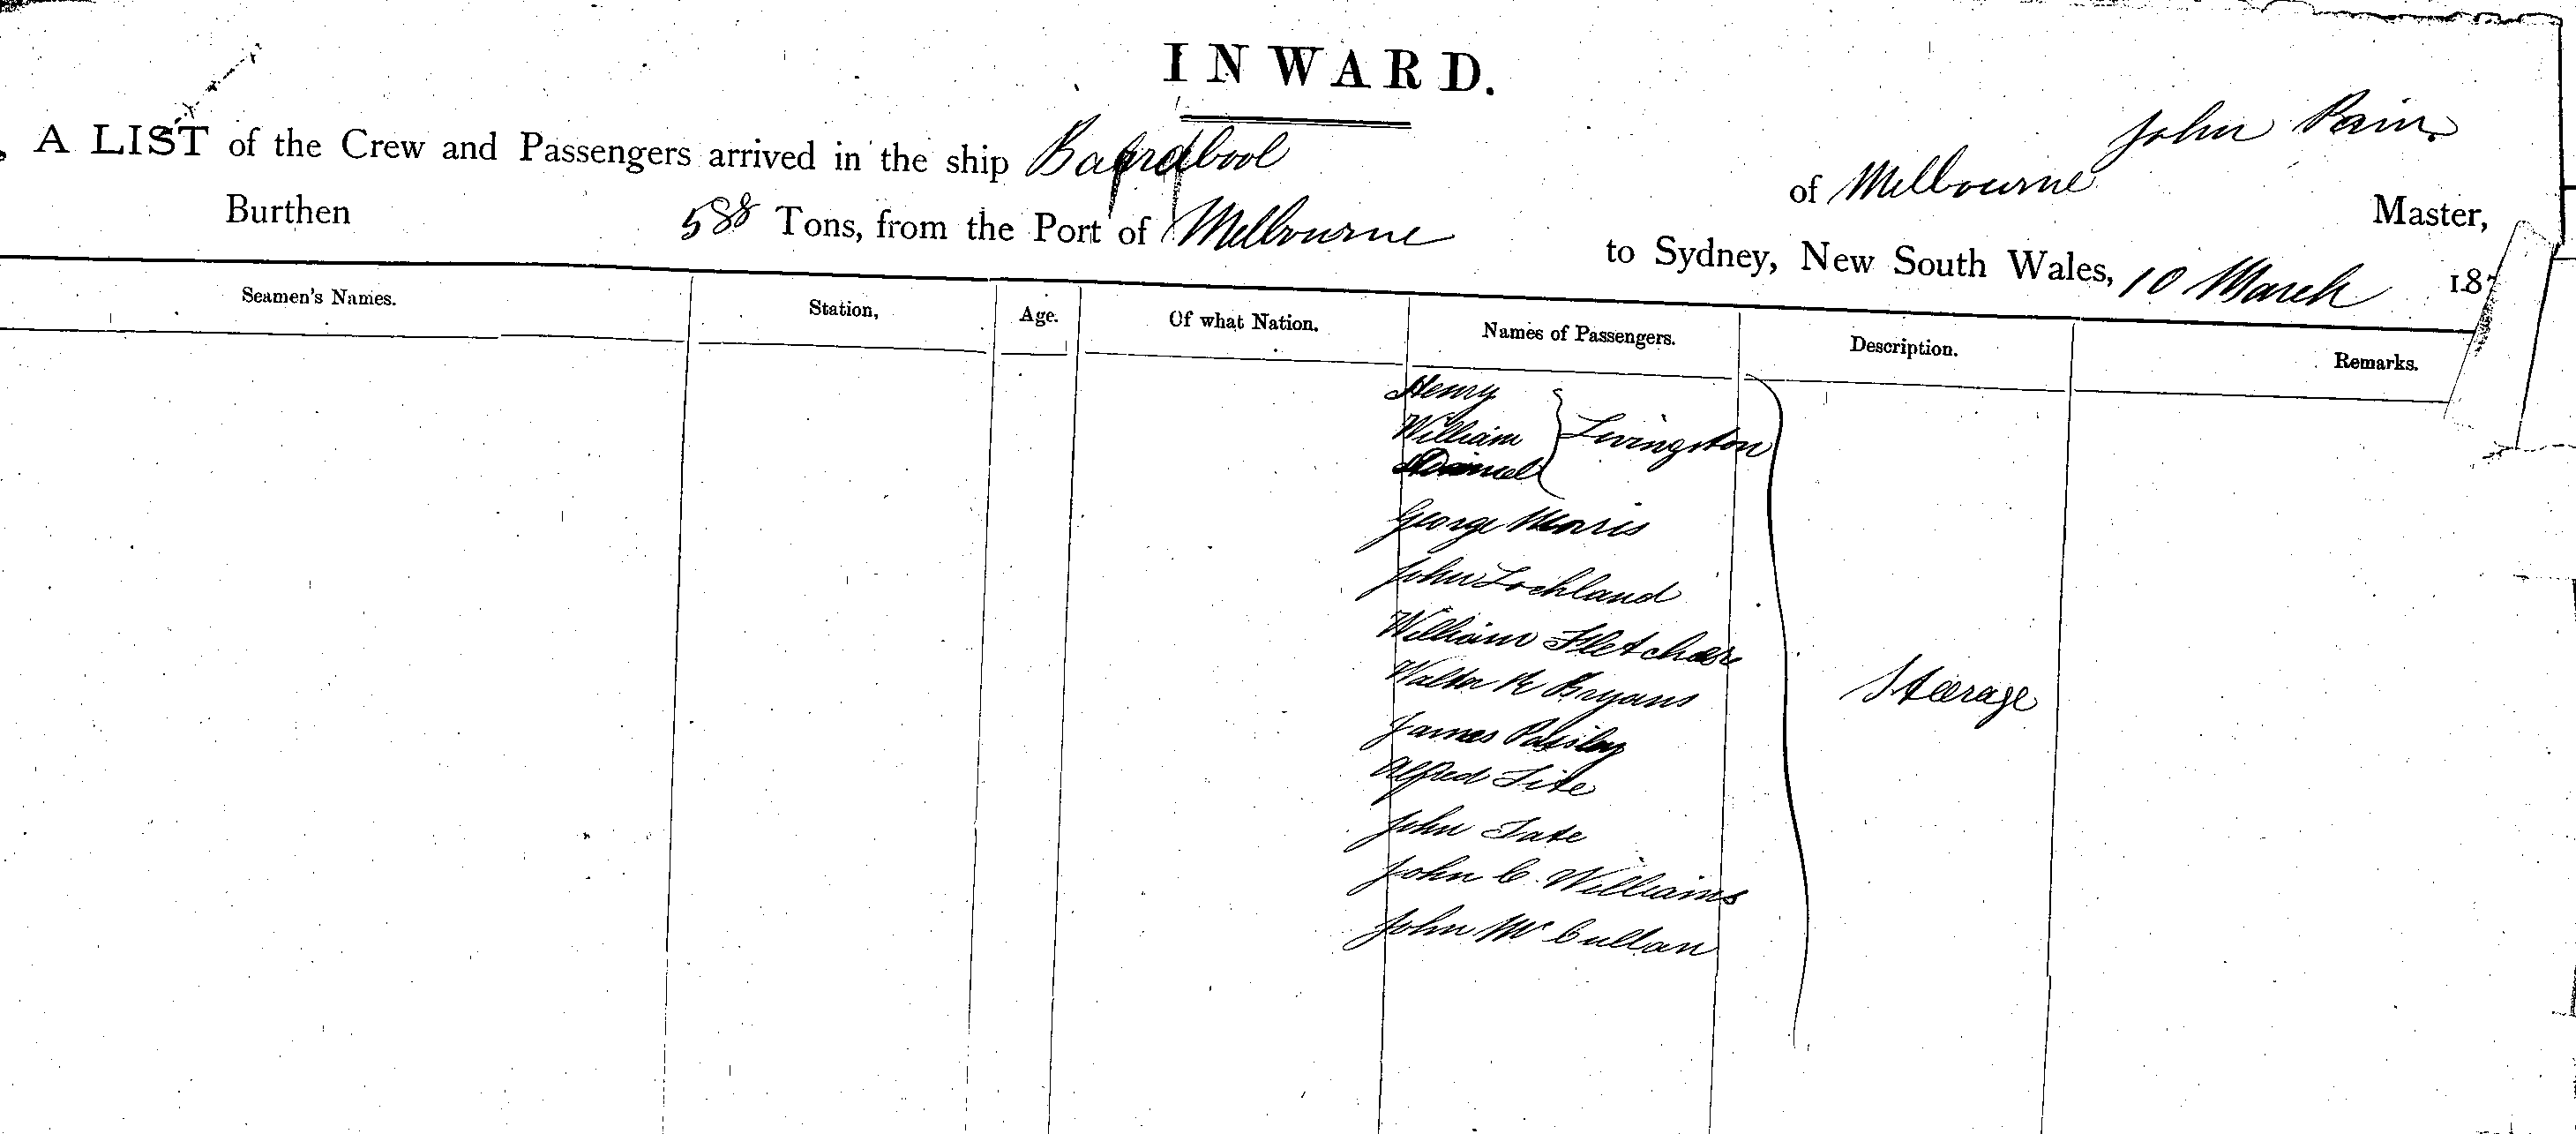 INWARD.
A LIST of the Crew and Passengers arrived in the ship Barrabool of Melbourne John Pain Master,
Burthen 588 Tons, from the Port of Melbourne to Sydney, New South Wales, 10 March 187
Seamen's Names. Station, Age. Of what Nation. Names of Passengers. Description. Remarks.
Henry
William } Livingston
Daniel
George Morris
John Lochland
William Fletcher
Walter R Bryans
James Paisley
Alfred Tite
Steerage
John Tate
John C. Williams
John Mc Cullan